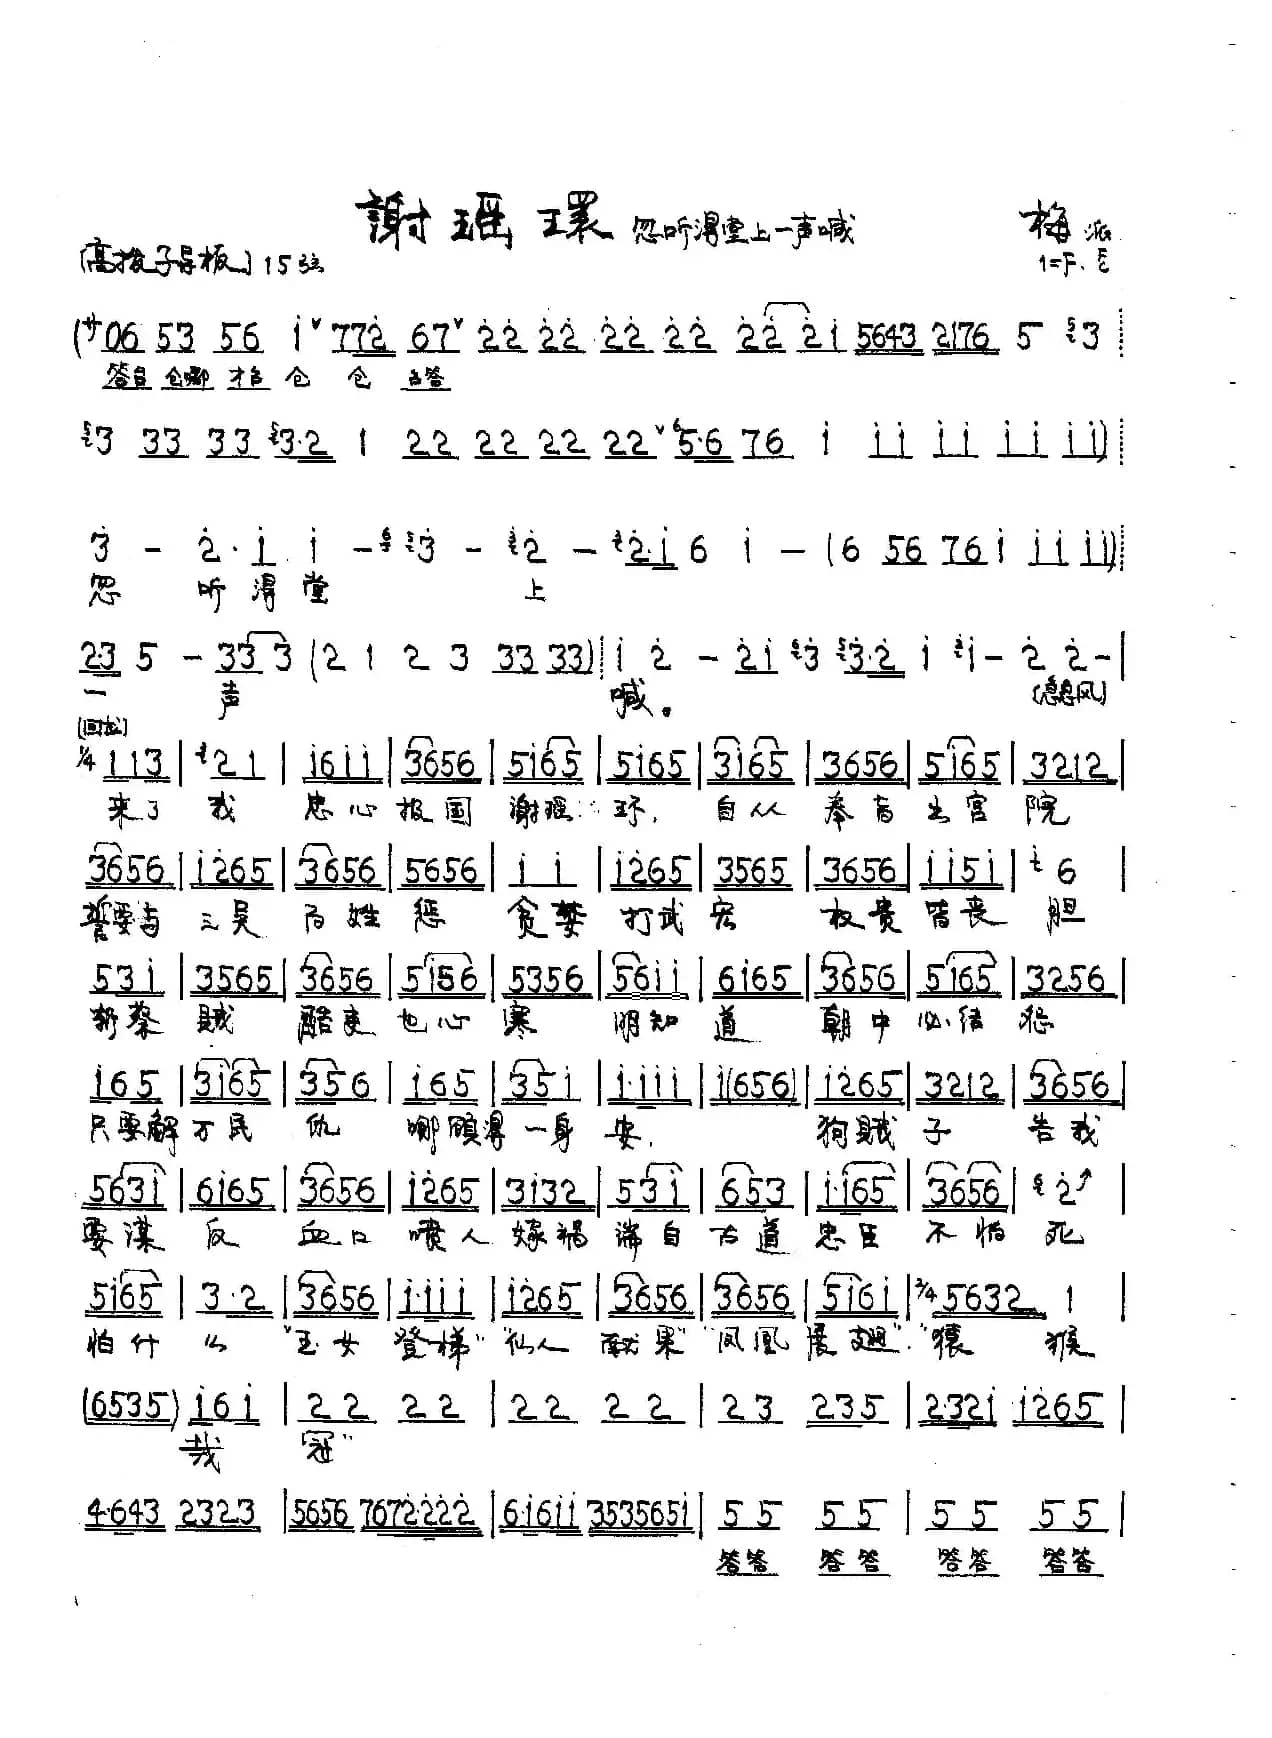 謝瑶環 忽听得堂上一声喊 梅派
[高拨子导板] 15弦 1=F.
(サ06 53 56 i ˅ 772 67˅ 22 22 22 22 22 2i 5643 2176 5 3
答台 仓哪 才台 仓 仓 台答
3 33 33 3·2 1 22 22 22 22 ˅ 5·6 76 i ii ii ii ii)
3 - 2·i i - 3 - 2 - 2·i 6 i - (6 56 76i ii ii)
忽 听得堂 上
2·3 5 - 33 3 (2 1 2 3 33 33) i 2 - 2i 3 3·2 i i- 2 2-|
一 声 喊。 (急急风)
[回龙]
1/4 113 | 21 | i6ii | 3656 | 5i65 | 5i65 | 3i65 | 3656 | 5i65 | 3212 |
来了 我 忠心 报国 谢瑶 环, 自从 奉旨 出宫 院
3656 | i265 | 3656 | 5656 | i i | i265 | 3565 | 3656 | ii5i | 6 |
誓要与 三吴 百姓 惩 贪婪 打武 宏 权贵 皆丧 胆
53i | 3565 | 3656 | 5i56 | 5356 | 56ii | 6i65 | 3656 | 5i65 | 3256 |
斩蔡 贼 酷吏 也心 寒 明知 道 朝中 必结 怨
i65 | 3i65 | 356 | i65 | 35i | i·iii | i(656) | i265 | 3212 | 3656 |
只要解 万民 仇 哪顾得 一身 安, 狗贼 子 告我
563i | 6i65 | 3656 | i265 | 3i32 | 53i | 653 | i·i65 | 3656 | 2 |
要谋 反 血口 喷人 嫁祸 端 自 古道 忠臣 不怕 死
5i65 | 3·2 | 3656 | i·iii | i265 | 3656 | 3656 | 5i6i | 2/4 5632 1 |
怕什 么 "玉女 登梯" "仙人 献果" "凤凰 展翅". "猿 猴
(6535) i6i | 22 22 | 22 22 | 23 235 | 232i i265 |
戴 冠"
4·643 2323 | 5656 7672·222 | 6·i6ii 353565i | 55 55 | 55 55 |
答答 答答 答答 答答